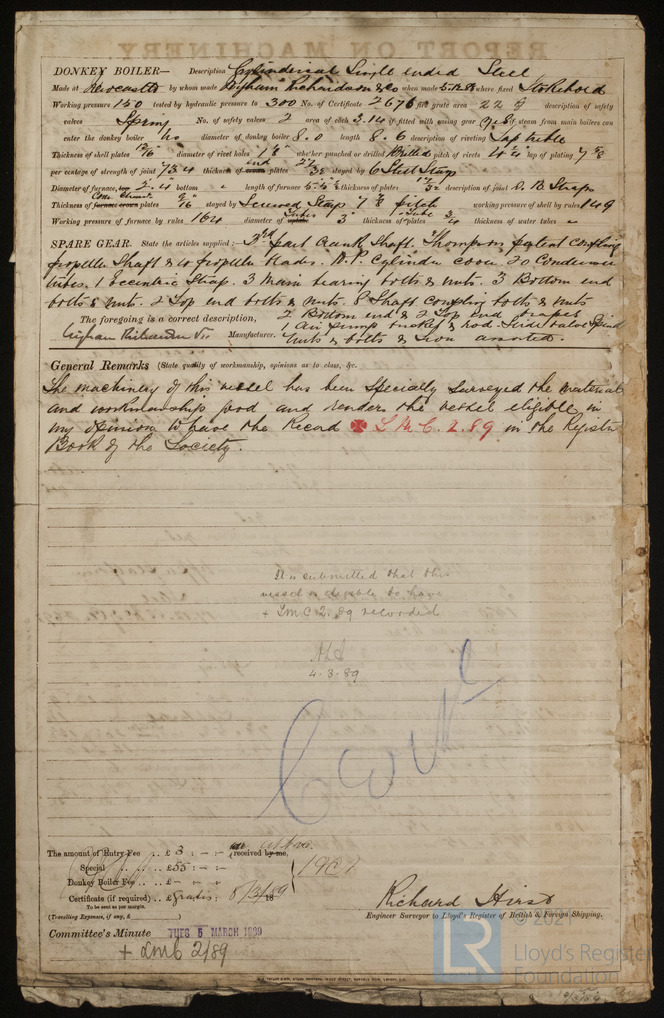 REPORT ON MACHINERY.
DONKEY BOILER— Description Cylindrical Single ended Steel
Made at Newcastle by whom made Wigham Richardson & Co when made 5.12.88 where fixed Stokehold
Working pressure 150 tested by hydraulic pressure to 300 No. of Certificate 2676 grate area 22 description of safety
valves Spring No. of safety valves 2 area of each 3.14 if fitted with easing gear yes if steam from main boilers can
enter the donkey boiler no diameter of donkey boiler 8.0 length 8.6 description of riveting Lap treble
Thickness of shell plates diameter of rivet holes whether punched or drilled Drilled pitch of rivets lap of plating
per centage of strength of joint 73.4 thickness of end plates stayed by 6 Steel Stays
Diameter of furnace, 2.4 bottom length of furnace thickness of plates description of joint D. B Straps
Thickness of furnace crown plates 9/16 stayed by Screwed Stays pitch working pressure of shell by rules 149
Working pressure of furnace by rules 164 diameter of tubes 3" thickness of tube plates 3/4 thickness of water tubes
SPARE GEAR. State the articles supplied:— 3rd part Crank Shaft. Thompsons patent coupling
propeller Shaft & 4 propeller blades. H.P. Cylinder cover 20 Condenser
tubes. 1 Eccentric Strap. 3 Main bearing bolts & nuts. 3 Bottom end
bolts & nuts. 2 Top end bolts & nuts. 8 Shaft coupling bolts & nuts
2 Bottom end & 2 Top end brasses
The foregoing is a correct description,
1 Air pump bucket & rod. Slide valve Spindle
Wigham Richardson & Co Manufacturer. Nuts & bolts & Iron assorted.
General Remarks (State quality of workmanship, opinions as to class, &c.
The machinery of this vessel has been Specially Surveyed the material
and workmanship good and renders the vessel eligible in
my opinion to have the Record ✠ L.M.C. 2.89 in the Register
Book of the Society.
It is submitted that this
vessel is eligible to have
+ LMC 2.89 recorded
4.3.89
The amount of Entry Fee .. £ 3 : – : – received by me,
Special .. .. £55 : – : –
Donkey Boiler Fee .. .. £ – : – : –
Certificate (if required) .. £ gratis : 5/3/89 18
To be sent as per margin.
(Travelling Expenses, if any, £ )
Richard Hirst
Engineer Surveyor to Lloyd's Register of British & Foreign Shipping.
Committee's Minute TUES 5 MARCH 1889
+ LMC 2/89
© 2021
LR
Lloyd's Register
Foundation